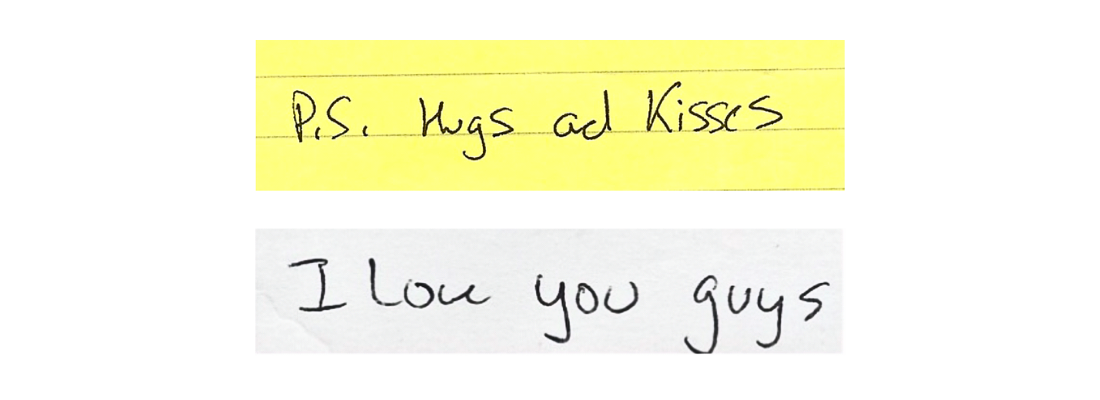 P.S. Hugs ad Kisses
I Love you guys